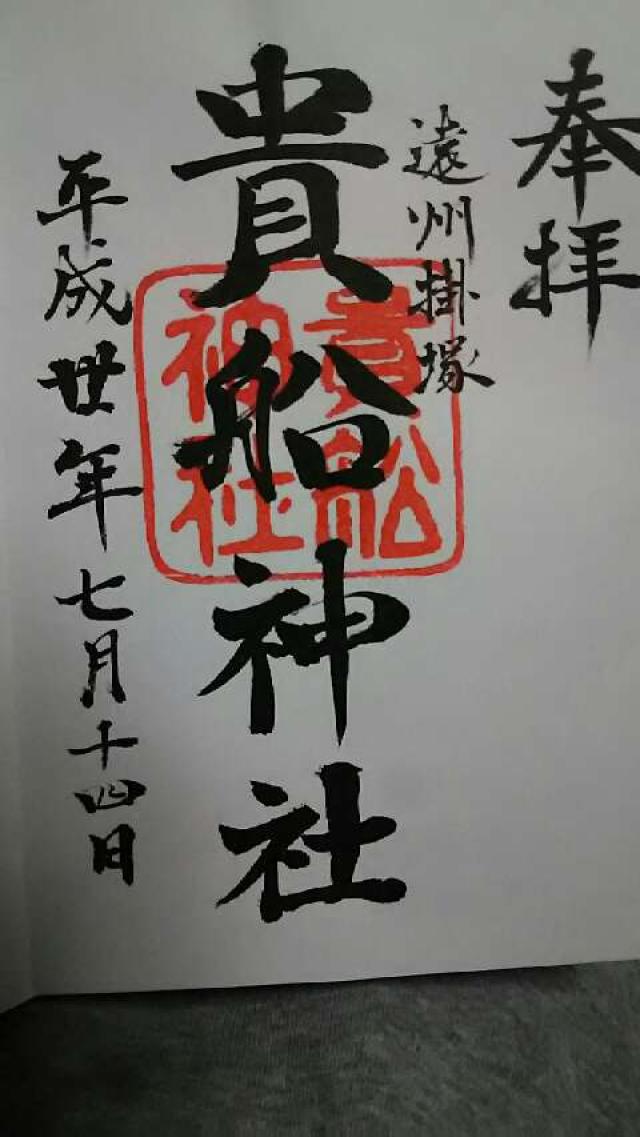 奉拝
遠州掛塚
貴船神社
貴船
神社
平成丗年七月十四日